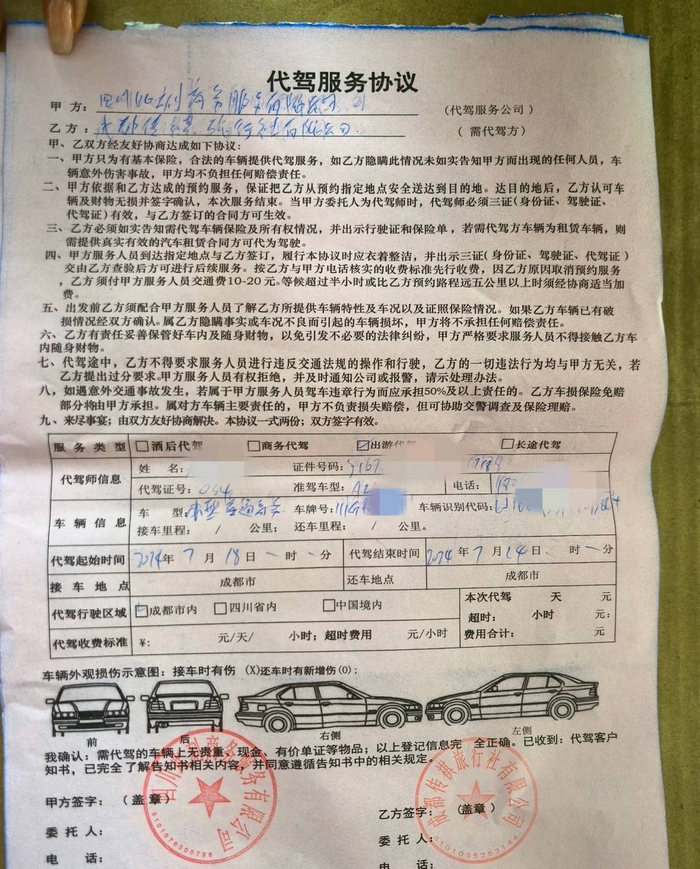 代驾服务协议
甲 方： (代驾服务公司)
乙 方： (需代驾方)
甲、乙双方经友好协商达成如下协议：
一、甲方只为有基本保险，合法的车辆提供代驾服务，如乙方隐瞒此情况未如实告知甲方而出现的任何人员，车
辆意外伤害事故，甲方均不负担任何赔偿责任。
二、甲方依据和乙方达成的预约服务，保证把乙方从预约指定地点安全送达到目的地。达目的地后，乙方认可车
辆及财物无损并签字确认，本次服务结束。当甲方委托人为代驾师时，代驾师必须三证(身份证、驾驶证、
代驾证)有效，与乙方签订的合同方可生效。
三、乙方必须如实告知需代驾车辆保险及所有权情况，并出示行驶证和保险单，若需代驾方车辆为租赁车辆，则
需提供真实有效的汽车租赁合同方可代为驾驶。
四、甲方服务人员到达指定地点与乙方签订，履行本协议时应衣着整洁，并出示三证(身份证、驾驶证、代驾证)
交由乙方查验后方可进行后续服务。按乙方与甲方电话核实的收费标准先行收费，因乙方原因取消预约服务
，乙方须付甲方服务人员交通费10-20元。等候超过半小时或比乙方预约路程远五公里以上时须经协商适当加
费。
五、出发前乙方须配合甲方服务人员了解乙方所提供车辆特性及车况以及证照保险情况。如果乙方车辆已有破
损情况经双方确认。属乙方隐瞒事实或车况不良而引起的车辆损坏，甲方将不承担任何赔偿责任。
六、乙方有责任妥善保管好车内及随身财物，以免引发不必要的法律纠纷，甲方严格要求服务人员不得接触乙方车
内随身财物。
七、代驾途中，乙方不得要求服务人员进行违反交通法规的操作和行驶，乙方的一切违法行为均与甲方无关，若
乙方提出过分要求.甲方服务人员有权拒绝，并及时通知公司或报警，请示处理办法。
八、如遇意外交通事故发生，若属于甲方服务人员驾车违章行为而应承担50%及以上责任的。乙方车损保险免赔
部分将由甲方承担。属对方车辆主要责任的，甲方不负责损失赔偿，但可协助交警调查及保险理赔。
九、来尽事宴：由双方友好协商解决。本协议一式两份；双方签字有效。
服 务 类 型 酒后代驾 商务代驾 出游代驾 长途代驾
代驾师信息 姓 名： 证件号码：
代驾证号： 准驾车型：A2 电话：
车 辆 信 息 车 型： 车牌号： 车辆识别代码：
接车里程： / 公里； 还车里程： / 公里。
代驾起始时间 2024年 7 月 18 日 一 时 一 分 代驾结束时间 2024 年 7 月 24 日、 时 一 分
接 车 地 点 成都市 还车地点 成都市
代驾行驶区域 成都市内 四川省内 中国境内 本次代驾 天 元
超时： 小时 元
代驾收费标准 ¥: 元/天/ 小时；超时费用 元/小时 费用合计： 元
车辆外观损伤示意图：接车时有伤 (X)还车时有新增伤(O)；
前 后 右侧 左侧
我确认：需代驾的车辆上无贵重、现金、有价单证等物品；以上登记信息完 全正确。已收到：代驾客户
知书，已完全了解告知书相关内容，并同意遵循告知书中的相关规定。
甲方签字： (盖章) 乙方签字： (盖章)
委 托 人： 委 托 人：
电 话： 电 话：
5101076300796
成都传祺旅行社有限公司
5101095252144